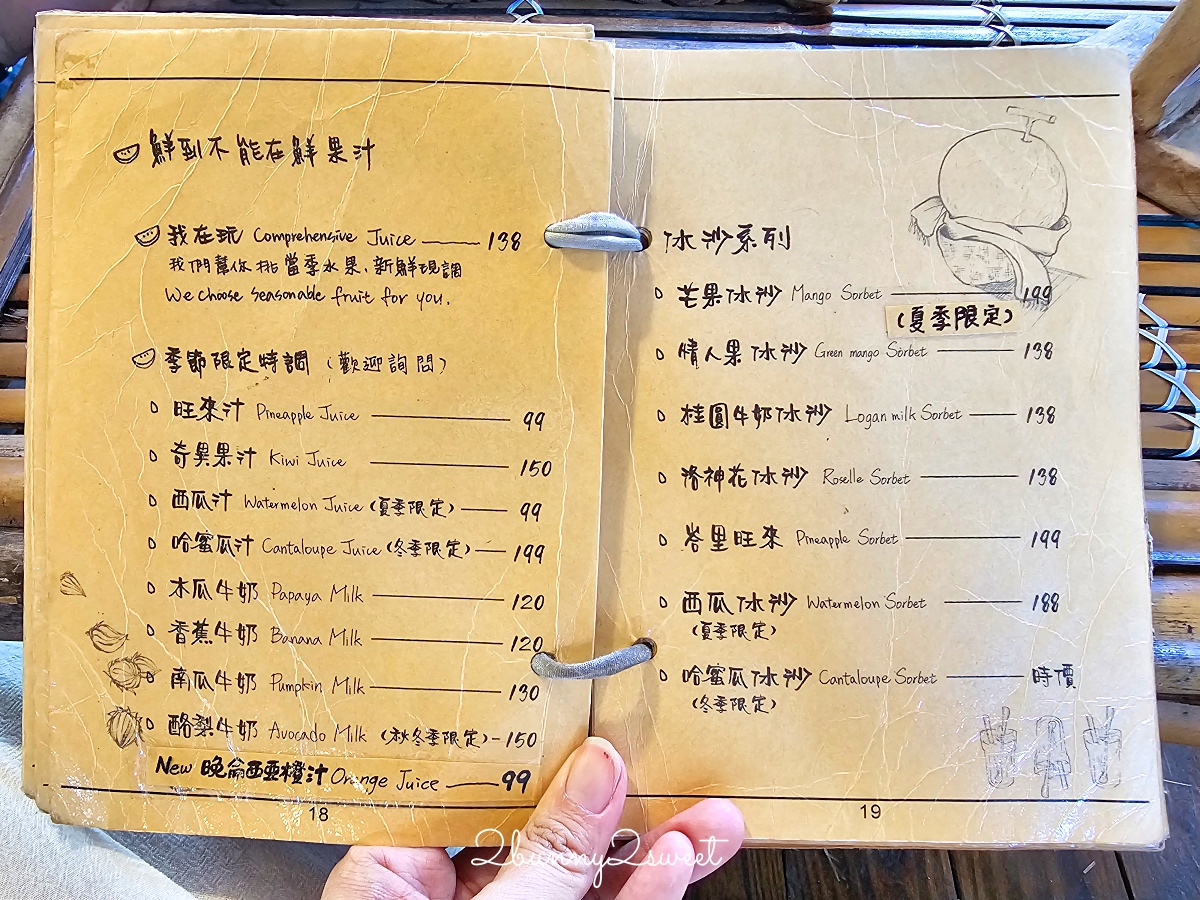 鮮到不能在鮮果汁
我在玩 Comprehensive Juice 138
我們幫你挑當季水果、新鮮現調
We choose seasonable fruit for you.
季節限定特調（歡迎詢問）
旺來汁 Pineapple Juice 99
奇異果汁 Kiwi Juice 150
西瓜汁 Watermelon Juice (夏季限定) 99
哈蜜瓜汁 Cantaloupe Juice (冬季限定) 199
木瓜牛奶 Papaya Milk 120
香蕉牛奶 Banana Milk 120
南瓜牛奶 Pumpkin Milk 130
酪梨牛奶 Avocado Milk (秋冬季限定) 150
New 晚侖西亞橙汁 Orange Juice 99
18
冰沙系列
芒果冰沙 Mango Sorbet 199
(夏季限定)
情人果冰沙 Green mango Sorbet 138
桂圓牛奶冰沙 Logan milk Sorbet 138
洛神花冰沙 Roselle Sorbet 138
峇里旺來 Pineapple Sorbet 199
西瓜冰沙 Watermelon Sorbet 188
(夏季限定)
哈蜜瓜冰沙 Cantaloupe Sorbet 時價
(冬季限定)
19
2bunny2sweet